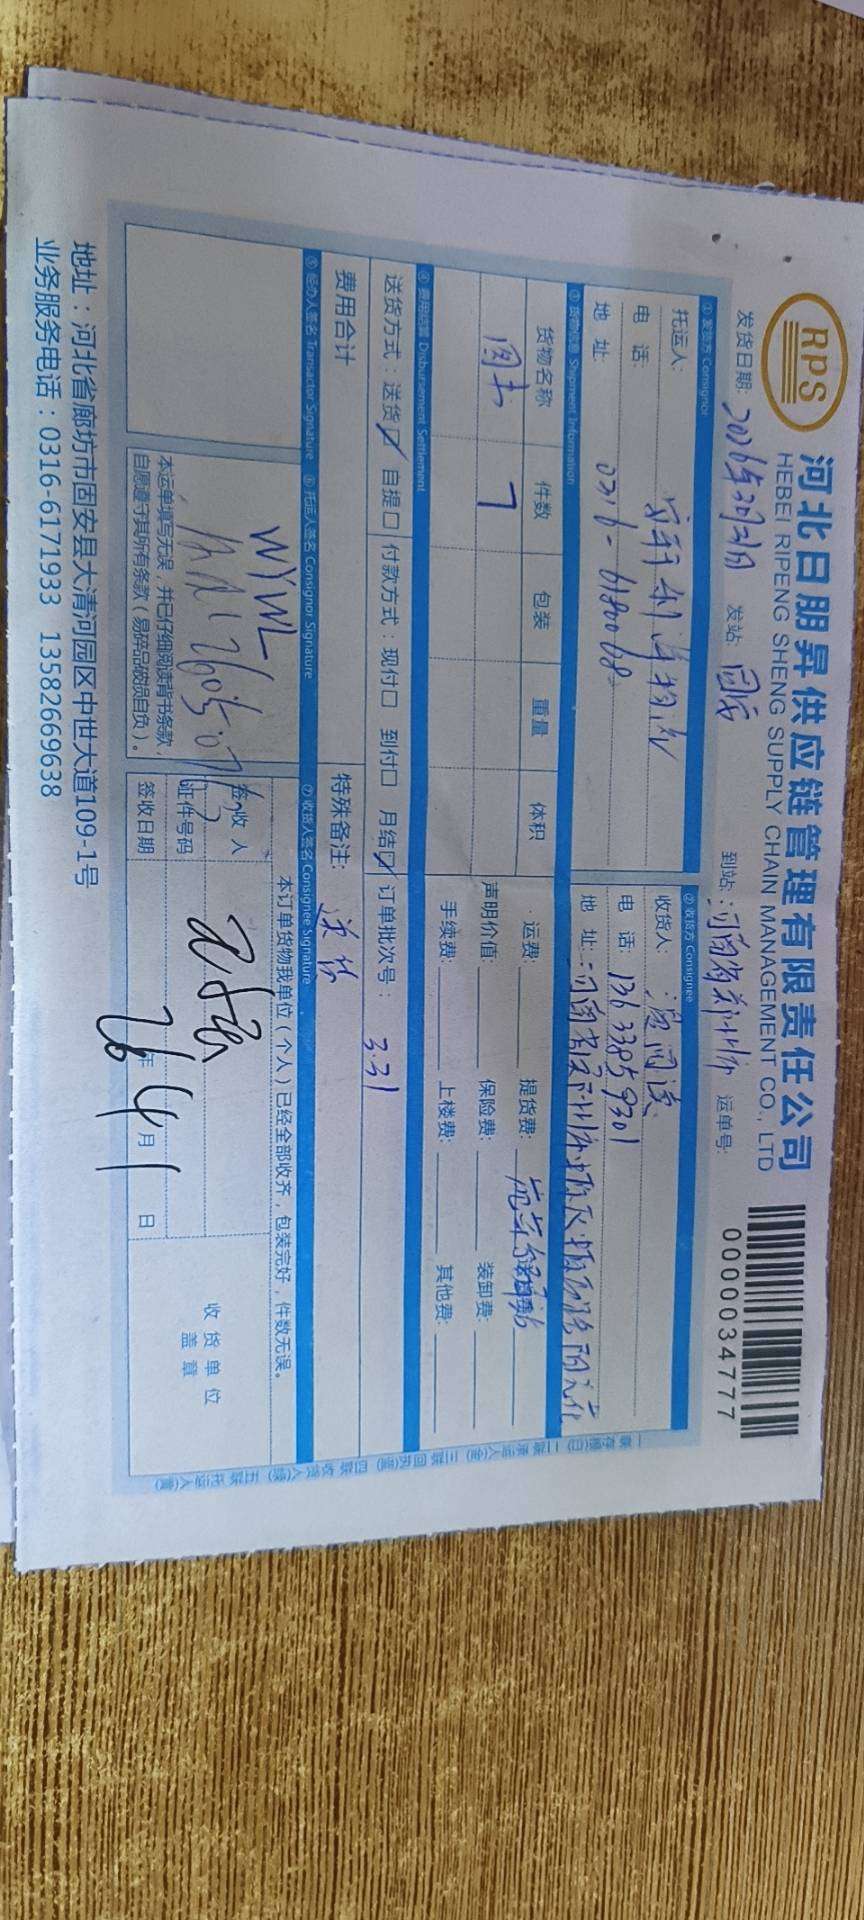 RPS
河北日朋昇供应链管理有限责任公司
HEBEI RIPENG SHENG SUPPLY CHAIN MANAGEMENT CO., LTD
0000034777
发货日期: 2026年3月31日 发站: 固安 到站: 河南省郑州市 运单号:
① 发货方 Consignor
托运人:
电 话: 0316-6180068
地 址:
② 收货方 Consignee
收货人:
电 话: 13633859301
地 址:
③ 货物信息 Shipment Information
货物名称 件数 包装 重量 体积
图书 7
运费: 提货费: 声明价值: 保险费: 装卸费:
手续费: 上楼费: 其他费:
④ 费用结算 Disbursement Settlement
送货方式: 送货☑ 自提□ 付款方式: 现付□ 到付□ 月结☑ 订单批次号: 3.31
费用合计 特殊备注: 送货
⑤ 经办人签名 Transactor Signature ⑥ 托运人签名 Consignor Signature ⑦ 收货人签名 Consignee Signature
WYWL
本运单填写无误，并已仔细阅读背书条款，
自愿遵守其所有条款（易碎品破损自负）。
本订单货物我单位（个人）已经全部收齐，包装完好，件数无误。
签收人
证件号码
签收日期 26年4月1日
收货单位
盖章
地址：河北省廊坊市固安县大清河园区中世大道109-1号
业务服务电话：0316-6171933 13582669638